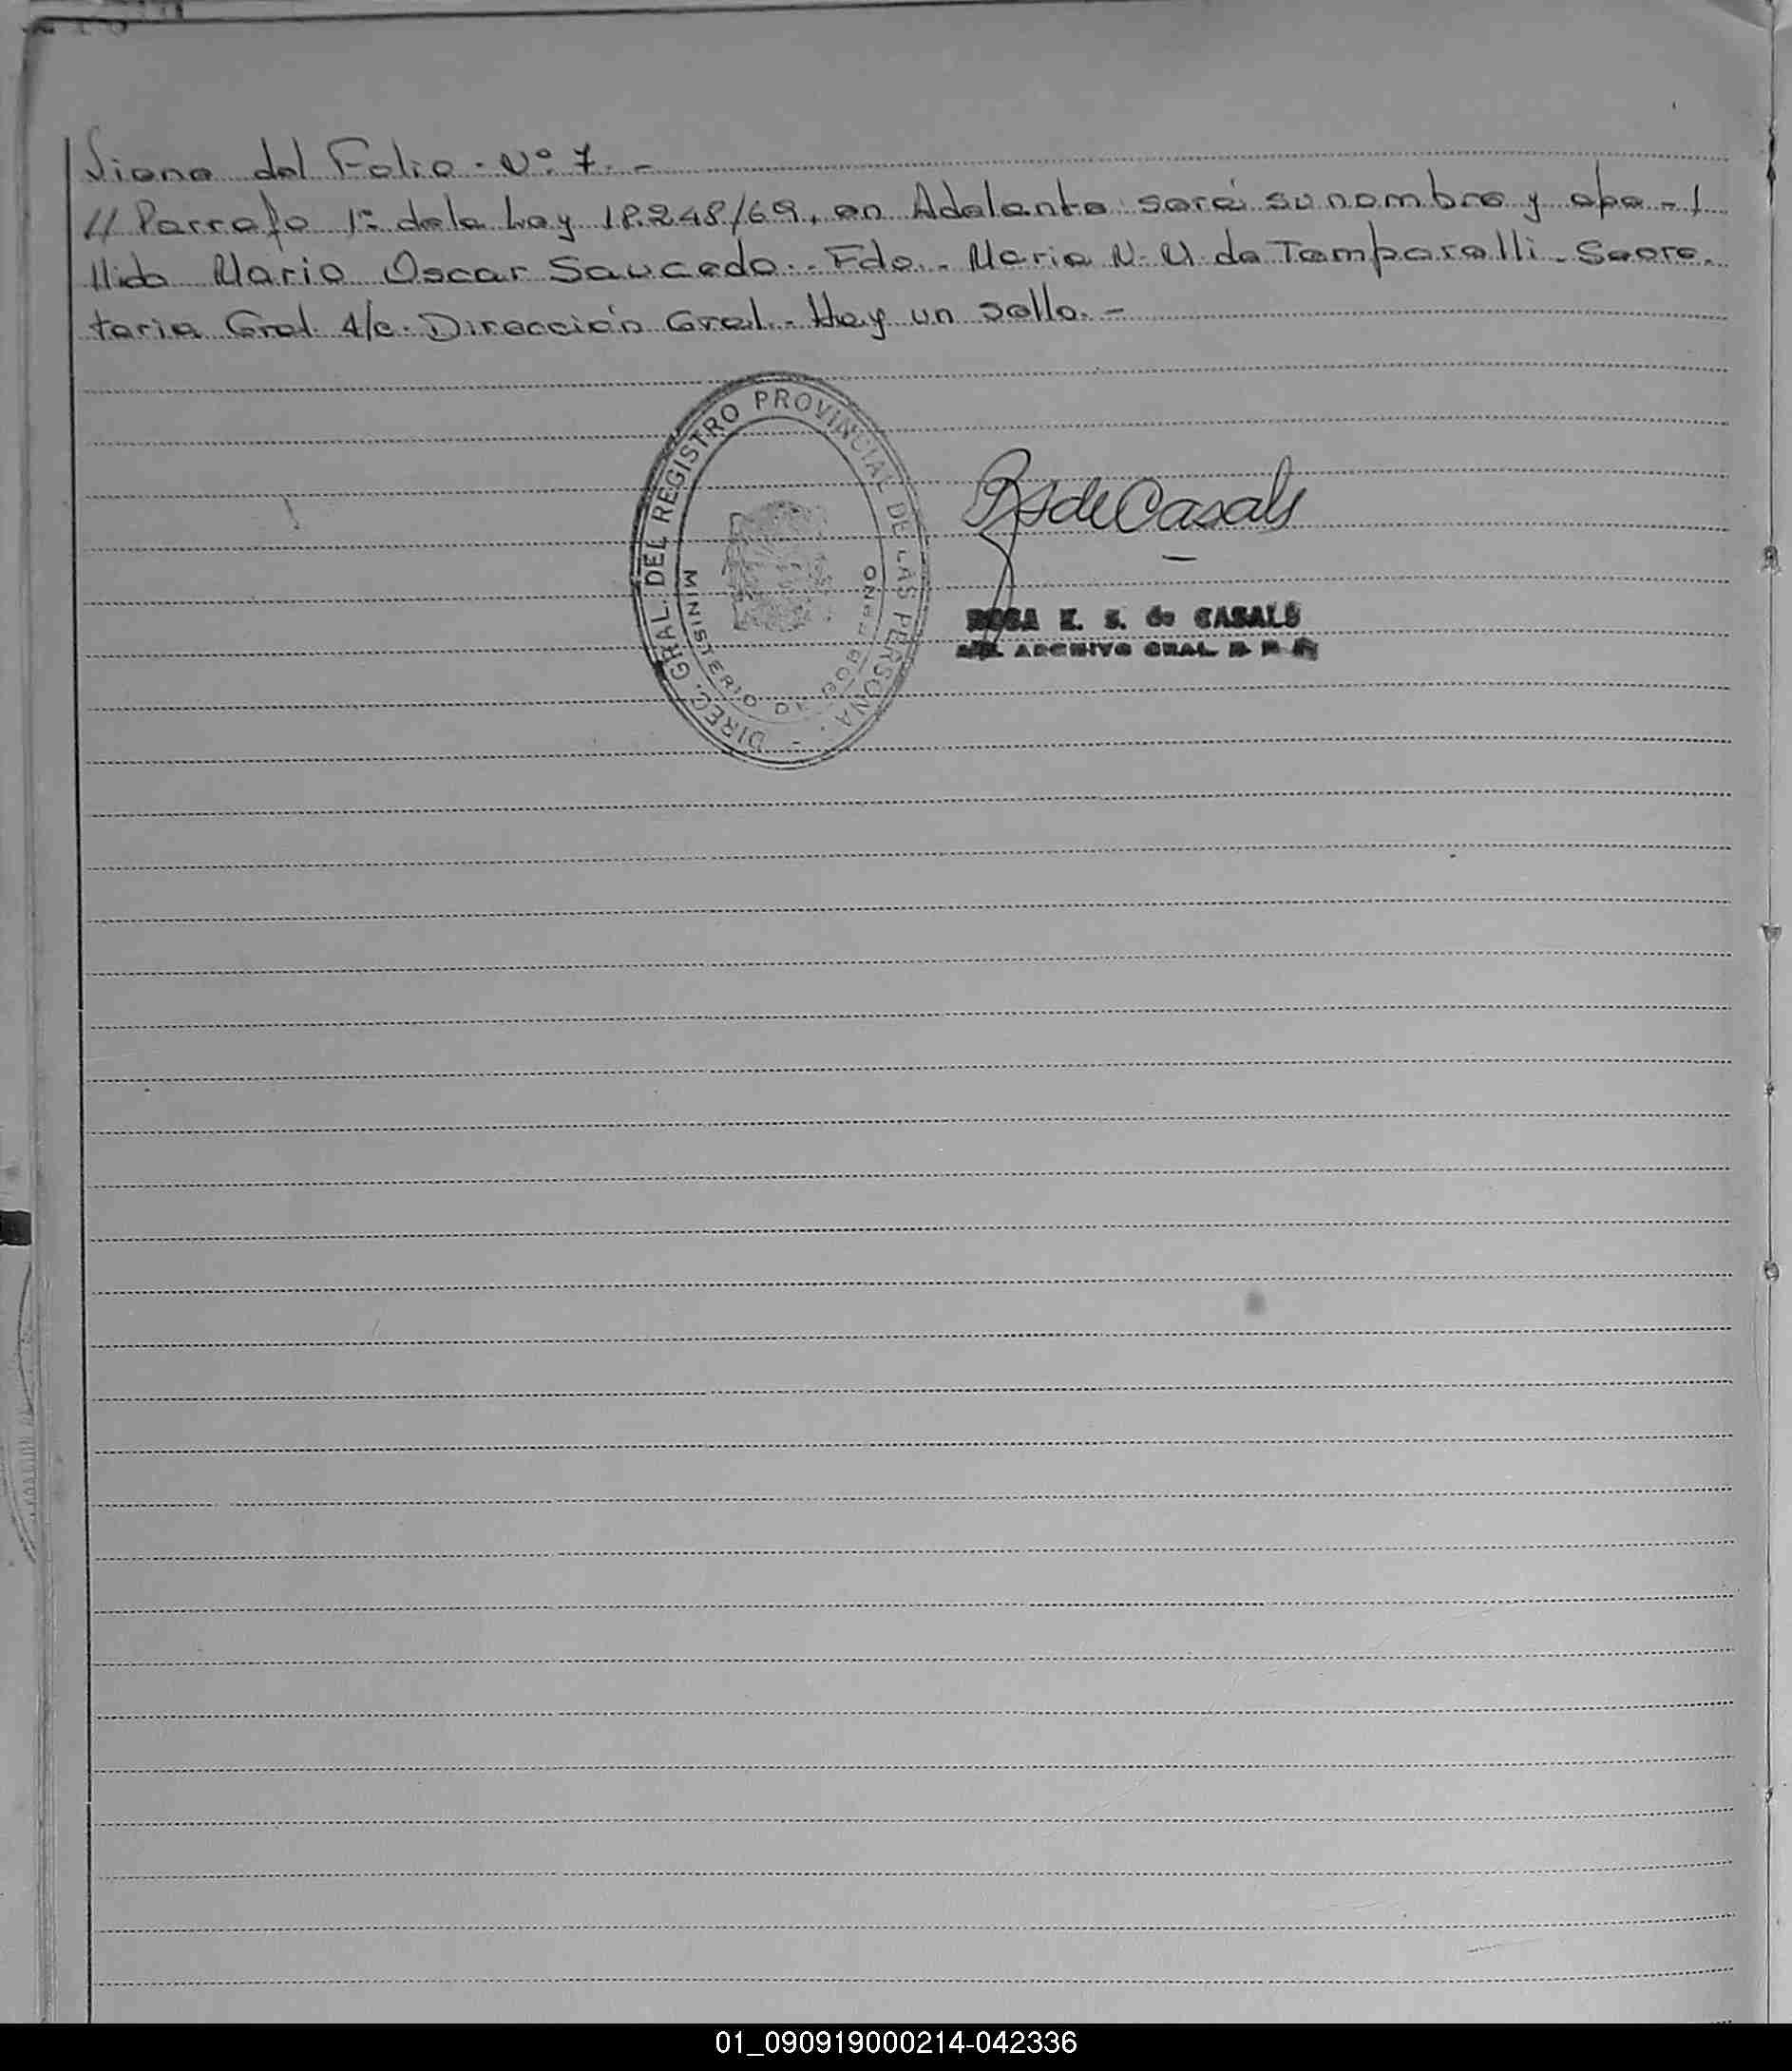 Viene del Folio. Nº. 7. -
// Parrafo 1º de la Ley 18.248/69, en Adelante será su nombre y ape - /
llido Mario Oscar Saucedo. - Fdo. - Maria N. U. de Tamparelli - Secre.
taria Gral. A/c. Dirección Gral. - Hay un sello. -
DIREC. GRAL. DEL REGISTRO PROVINCIAL DE LAS PERSONA. -
MINISTERIO DE GOBIERNO
RS de Casals
ROSA E. S. de CASALS
ARCHIVO GRAL.
01_090919000214-042336